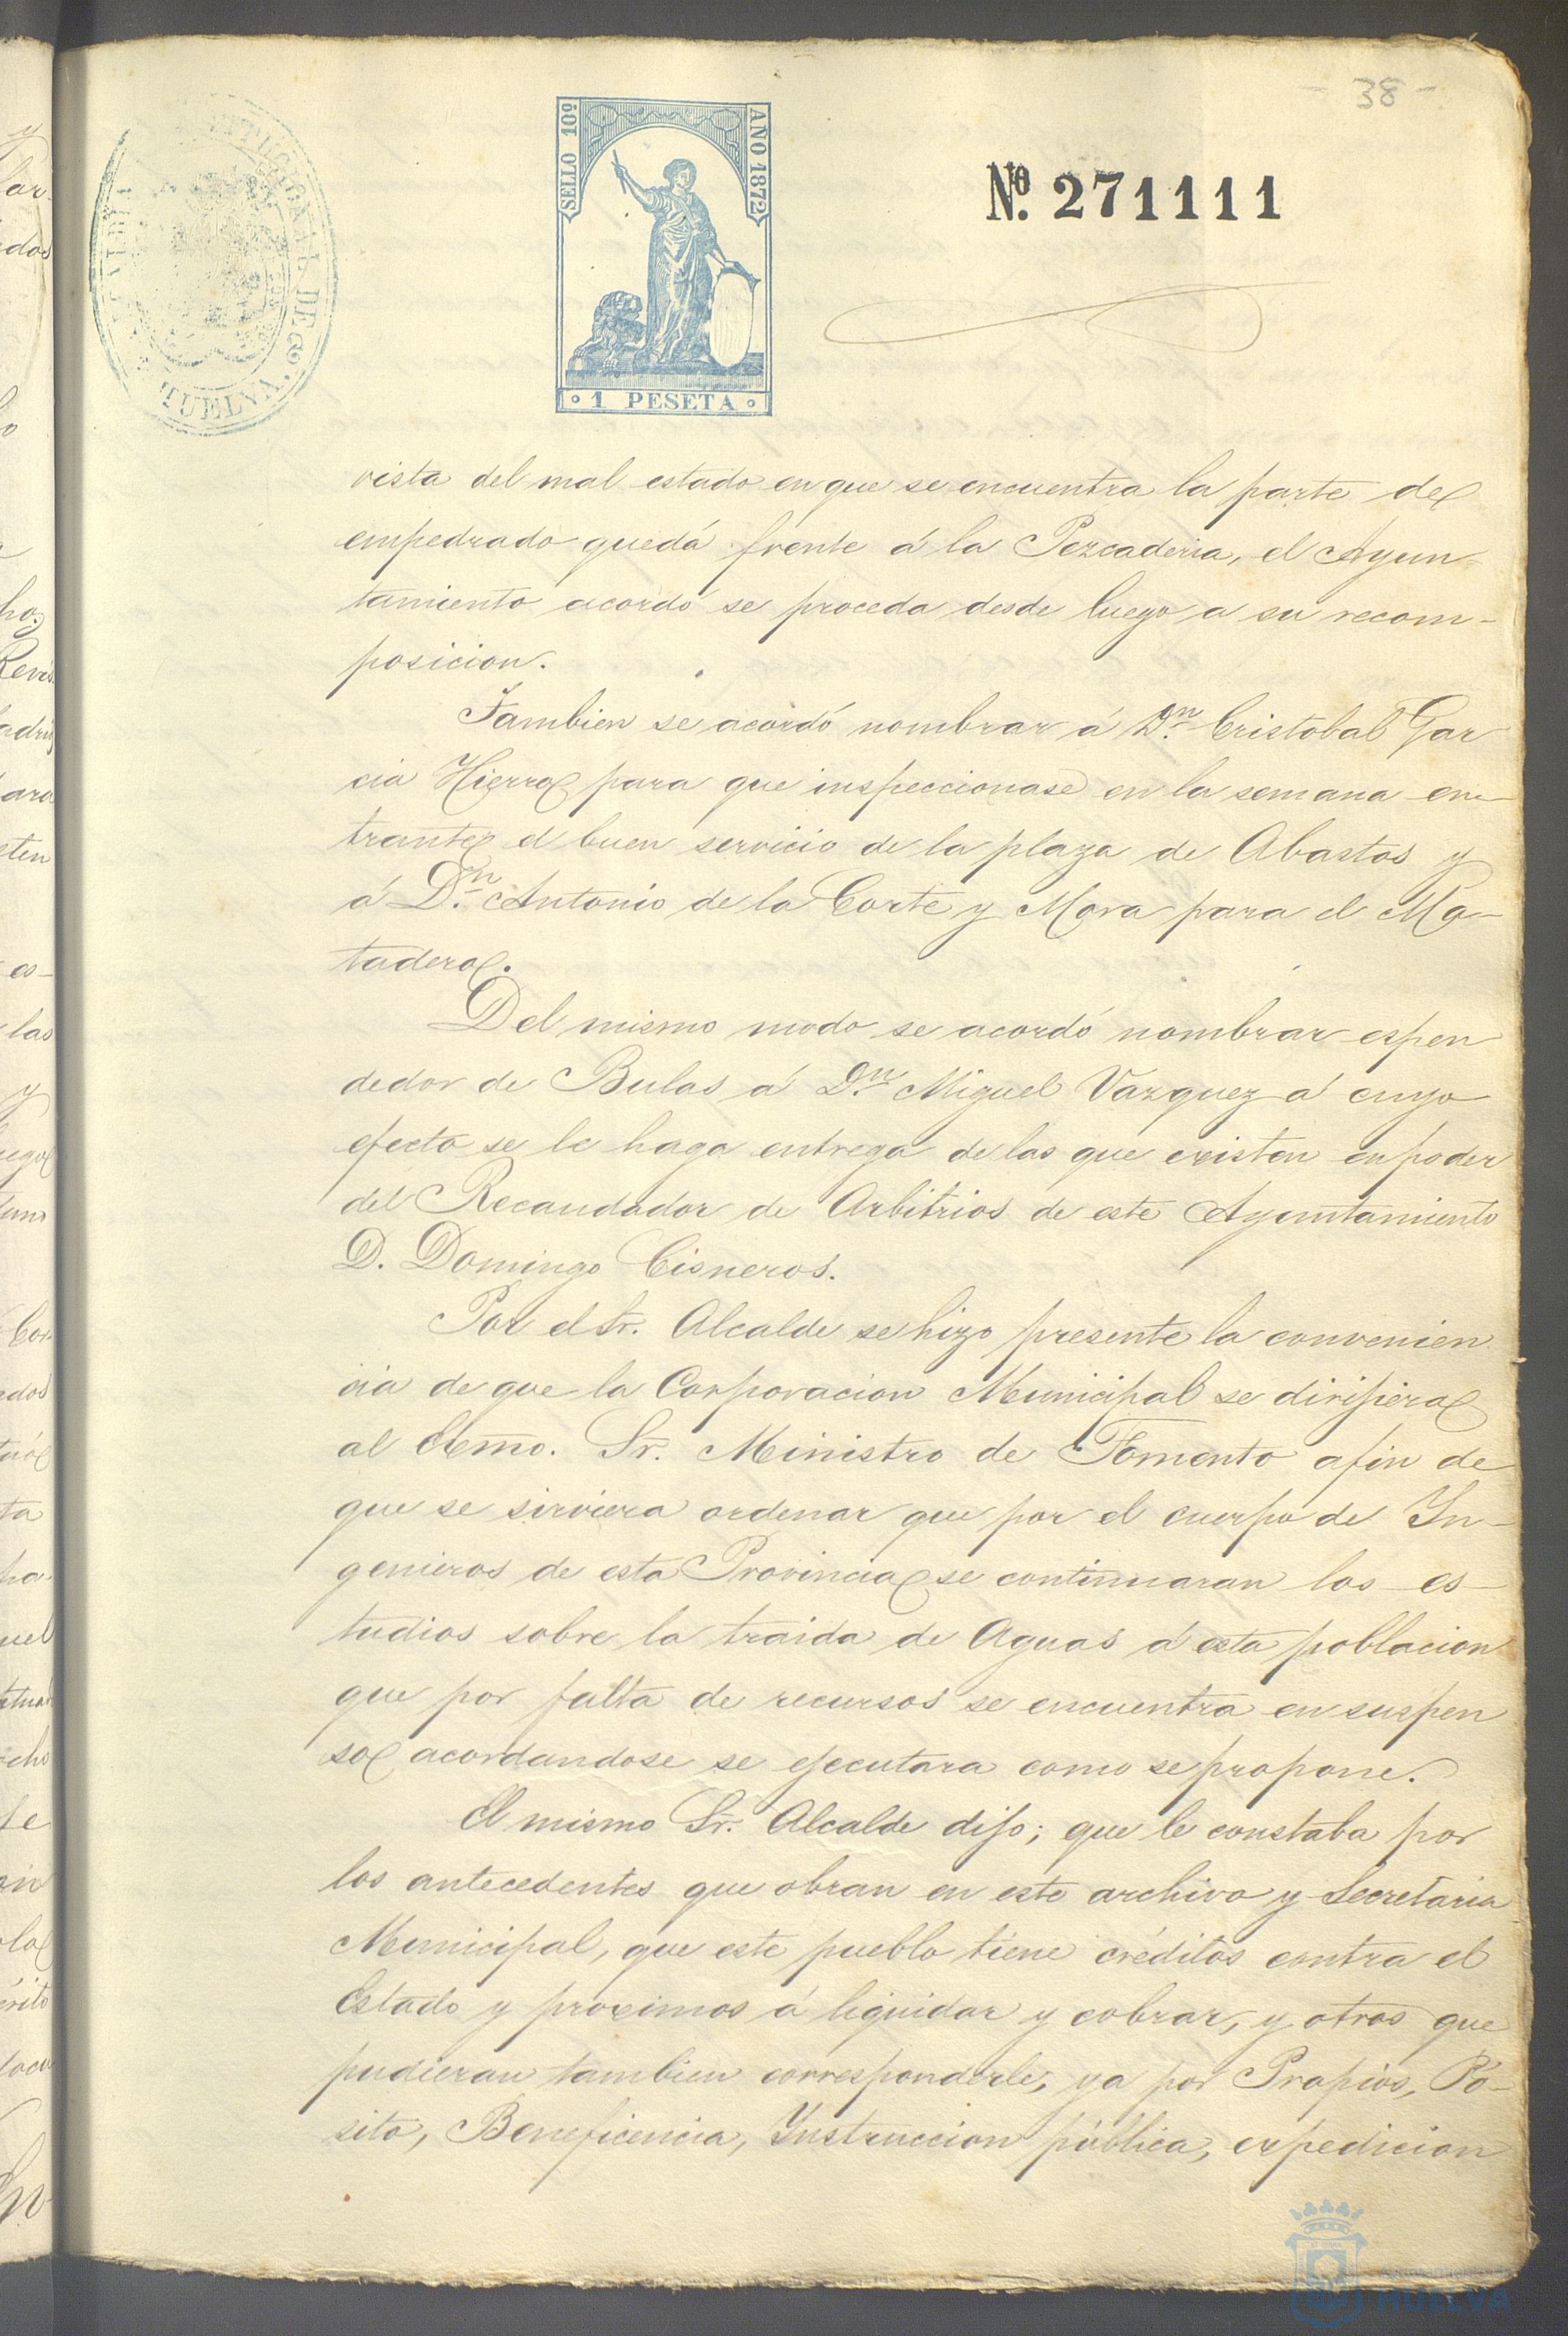 - 38 -
SELLO 10º
AÑO 1872
Nº. 271111
1 PESETA
DE
HUELVA.
vista del mal estado en que se encuentra la parte de
empedrado quedá frente á la Pezcaderia, el Ayun
tamiento acordó se proceda desde luego a su recom-
posicion.
Tambien se acordó nombrar á Dn. Cristobal Gar
cia Hierro para que inspeccionase en la semana en-
trante el buen servicio de la plaza de Abastos y
á Dn. Antonio de la Corte y Mora para el Ma-
tadero.
Del mismo modo se acordó nombrar espen
dedor de Bulas á Dn. Miguel Vazquez á cuyo
efecto se le haga entrega de las que existen en poder
del Recaudador de Arbitrios de este Ayuntamiento
D. Domingo Cisneros.
Por el Sr. Alcalde se hizo presente la convenien
cia de que la Corporacion Municipal se dirijiera
al Ecmo. Sr. Ministro de Fomento afin de
que se sirviera ordenar que por el cuerpo de In-
genieros de esta Provincia se continuaran los es-
tudios sobre la traida de Aguas á esta poblacion
que por falta de recursos se encuentra en suspen
so acordandose se ejecutara como se propone.
El mismo Sr. Alcalde dijo; que le constaba por
los antecedentes que obran en este archivo y Secretaria
Municipal, que este pueblo tiene créditos contra el
Estado y proximos á liquidar y cobrar, y otros que
pudieran tambien corresponderle, ya por Propios, Pó-
sito, Beneficencia, Instruccion pública, expedicion
HUELVA